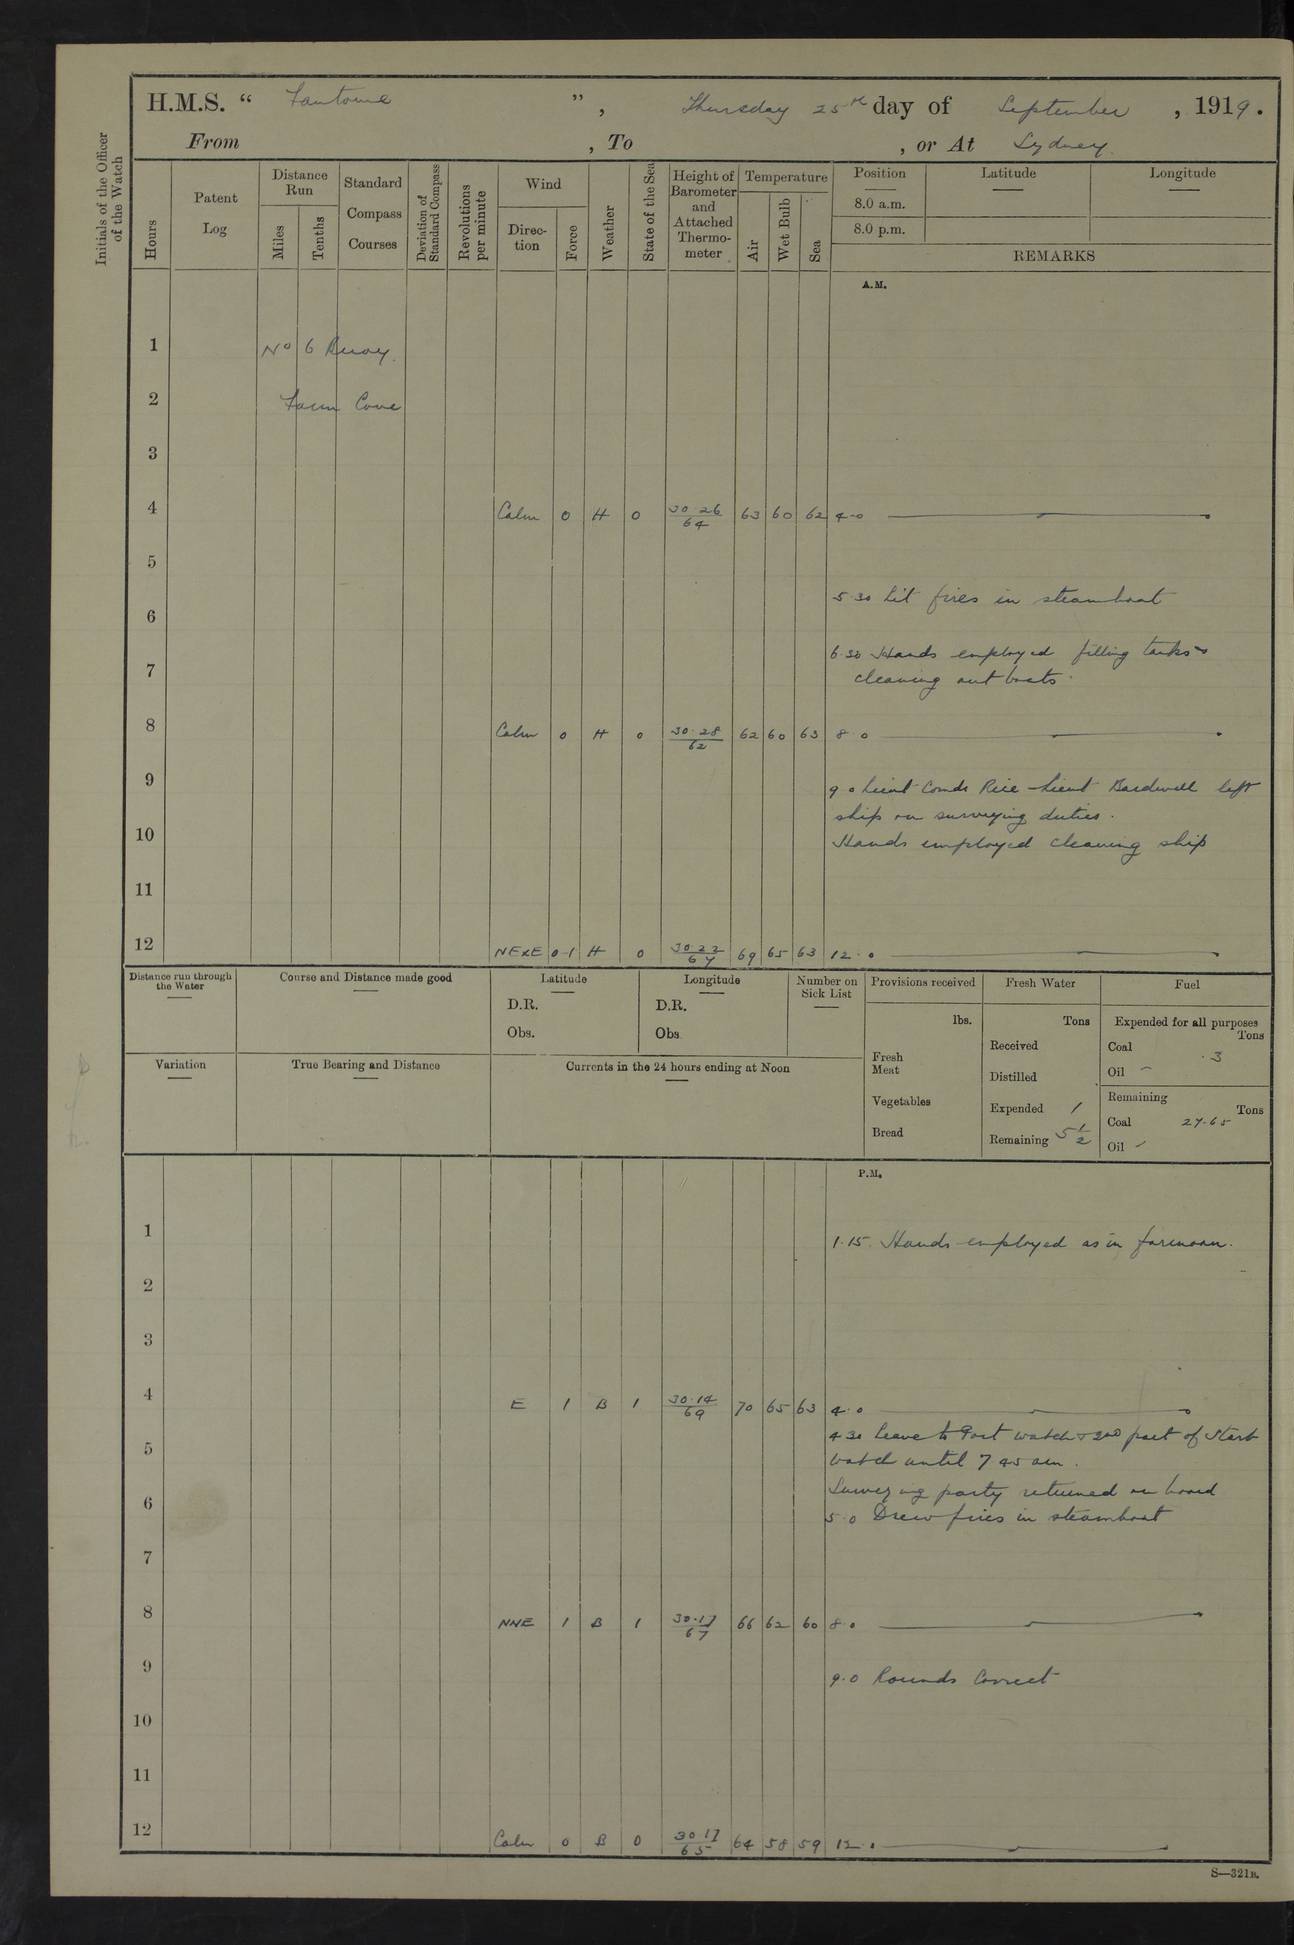 H.M.S. " Fantome ", Thursday 25th day of September, 1919.
From , To , or At Sydney.
Initials of the Officer of the Watch
Hours
Patent Log
Distance Run
Miles
Tenths
Standard Compass Courses
Deviation of Standard Compass
Revolutions per minute
Wind
Direction
Force
Weather
State of the Sea
Height of Barometer and Attached Thermometer
Temperature
Air
Wet Bulb
Sea
Position
8.0 a.m.
8.0 p.m.
Latitude
Longitude
REMARKS
A.M.
1 No 6 Buoy.
2 Farm Cove
3
4 Calm 0 H 0 30.26/64 63 60 62 4.0
5
5.30 Lit fires in steamboat
6
6.30 Hands employed filling tanks &
7 cleaning out boats.
8 Calm 0 H 0 30.28/62 62 60 63 8.0
9 9.0 Lieut Comdr Rice Lieut Bardwell left
ship on surveying duties.
10 Hands employed cleaning ship
11
12 NExE 0-1 H 0 30.22/67 69 65 63 12.0
Distance run through the Water
Course and Distance made good
Latitude
D.R.
Obs.
Longitude
D.R.
Obs.
Number on Sick List
Provisions received
lbs.
Fresh Meat
Vegetables
Bread
Fresh Water
Tons
Received
Distilled
Expended 1
Remaining 5 1/2
Fuel
Expended for all purposes
Tons
Coal .3
Oil -
Remaining
Tons
Coal 27.65
Oil -
Variation
True Bearing and Distance
Currents in the 24 hours ending at Noon
P.M.
1 1.15 Hands employed as in forenoon.
2
3
4 E 1 B 1 30.14/69 70 65 63 4.0
4.30 Leave to Port watch & 2nd part of Starb
5 watch until 7.45 am.
Surveying party returned on board
6 5.0 Drew fires in steamboat
7
8 NNE 1 B 1 30.17/67 66 62 60 8.0
9 9.0 Rounds Correct
10
11
12 Calm 0 B 0 30.17/65 64 58 59 12.0
S—321B.